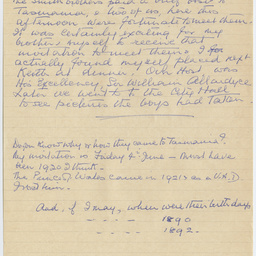 the Smith brothers paid a only visit to
Tasmania, & two of us here this
afternoon were fortunate to meet them.
It was certainly exciting for my
brother & myself to receive that
invitation to meet them & I for
actually found myself placed next
Keith at dinner. Our Host was
His Excellency, Sir William Allardyce
Later we went to the City Hall
to see pictures the boys had taken.
Do you know why or when they came to Tasmania?
My invitation is Friday 4th June - must have
been 1920 I think.
The Prince of Wales came in 1921 &
from him.
And, if I may, when were their birthdays
1890
1892.